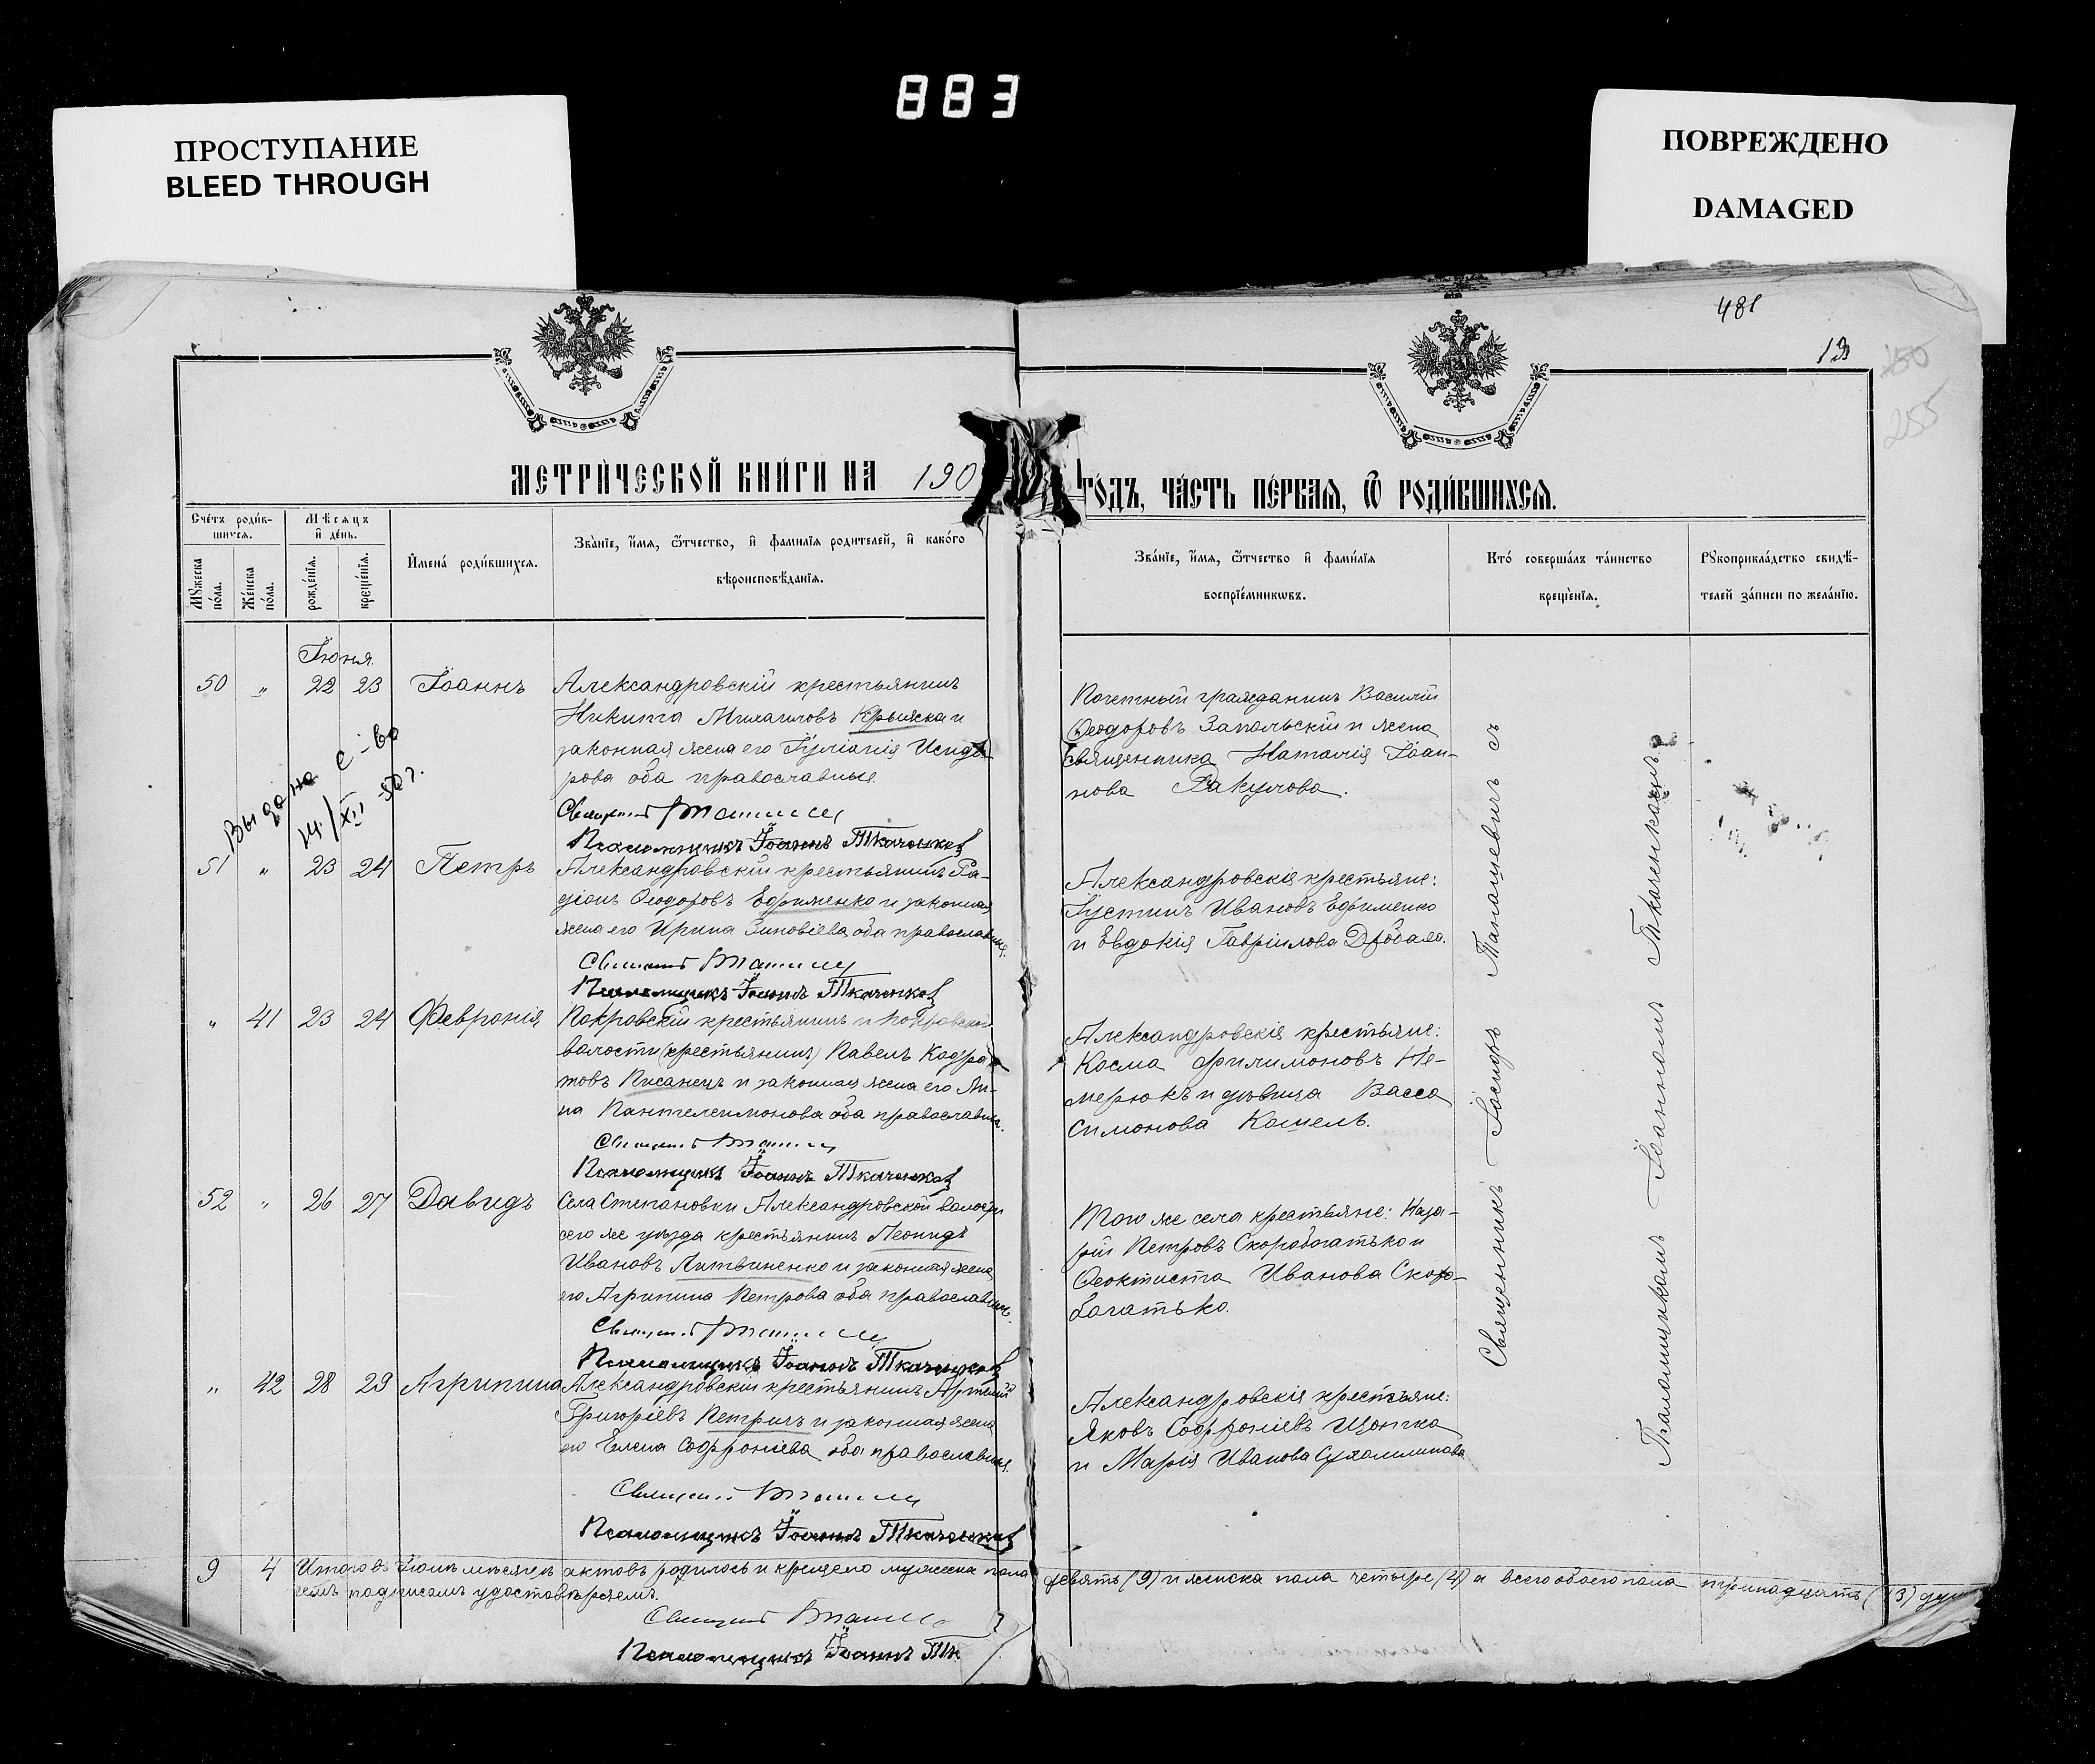 883
ПРОСТУПАНИЕ
BLEED THROUGH
ПОВРЕЖДЕНО
DAMAGED
481
13
250
255
МЕТРИ́ЧЕСКОЙ КНИ́ГИ НА 190
ГОДЪ, ЧА́СТЬ ПЕ́РВАЯ, Ѿ РОДИ́ВШИХСЯ.
Сче́тъ роди́в-
шихся.
Мѣсяцъ
и де́нь.
Мꙋжеска по́ла.
Же́нска по́ла.
рожде́нїя.
креще́нїя.
И҆мена̀ роди́вшихся.
Зва́нїе, и҆́мя, ѻ҆́тчество, и҆ фами́лїя родителей, и҆ како́го
вѣроисповѣ́данїя.
Зва́нїе, и҆́мя, ѻ҆́тчество и҆ фами́лїя
воспрїе́мникѡвъ.
Кто́ соверша́лъ та́инство
креще́нїя.
Рꙋкоприкла́дство свидѣ́-
телей за́писи по жела́нїю.
Іюня
50 " 22 23 Іоаннъ
Александровскій крестьянинъ
Никита Михаиловъ Крыжка и
законная жена его Іуліанія Исидо
рова оба православные.
Священникъ
Псаломщикъ Іоаннъ Ткаченков
Почетный гражданинъ Василій
Ѳеодоровъ Запольскій и жена
священника Наталія Іоан-
нова Вакулова.
Выдано с-во
14/XII
51 " 23 24 Петръ
Александровскій крестьянинъ Ра-
діонъ Ѳеодоровъ Ефименко и законная
жена его Ирина Зиновіева оба православные.
Священникъ
Псаломщикъ Іоаннъ Ткаченков
Александровскія крестьяне:
Іустинъ Ивановъ Ефименко
и Евдокія Гавріилова Дробало.
" 41 23 24 Февронія
Покровскій крестьянинъ и Покровской
волости (крестьянинъ) Павелъ Кодра
товъ Писанецъ и законная жена его Ан-
на Пантелеимонова оба православные.
Священникъ
Псаломщикъ Іоаннъ Ткаченков
Александровскія крестьяне:
Косма Филимоновъ Не-
мерюкъ и дѣвица Васса
Симонова Кошель.
52 " 26 27 Давидъ
Села Степановки Александровской волости
сего же уѣзда крестьянинъ Леонидъ
Ивановъ Литвиненко и законная жена
его Агрипина Петрова оба православные.
Священникъ
Псаломщикъ Іоаннъ Ткаченков
Того же села крестьяне: Наза-
рій Петровъ Скоробогатько и
Ѳеоктиста Иванова Скоро-
богатько.
" 42 28 29 Агрипина
Александровскій крестьянинъ Артемій
Григоріевъ Петричъ и законная жена
его Елена Софроніева оба православные.
Священникъ
Псаломщикъ Іоаннъ Ткаченков
Александровскія крестьяне:
Яковъ Софроніевъ Щотка
и Марія Иванова Сухомлинова
Священникъ Іосифъ Танашевичъ съ
Псаломщикомъ Іоанномъ Ткаченковымъ
9 4 Итого въ Іюнѣ мѣсяцѣ актовъ родилось и крещено мужеска пола девять (9) и женска пола четыре (4) а всего обоего пола тринадцать (13) душ
чемъ подписомъ удостовѣряемъ.
Священникъ
Псаломщикъ Іоаннъ Тк